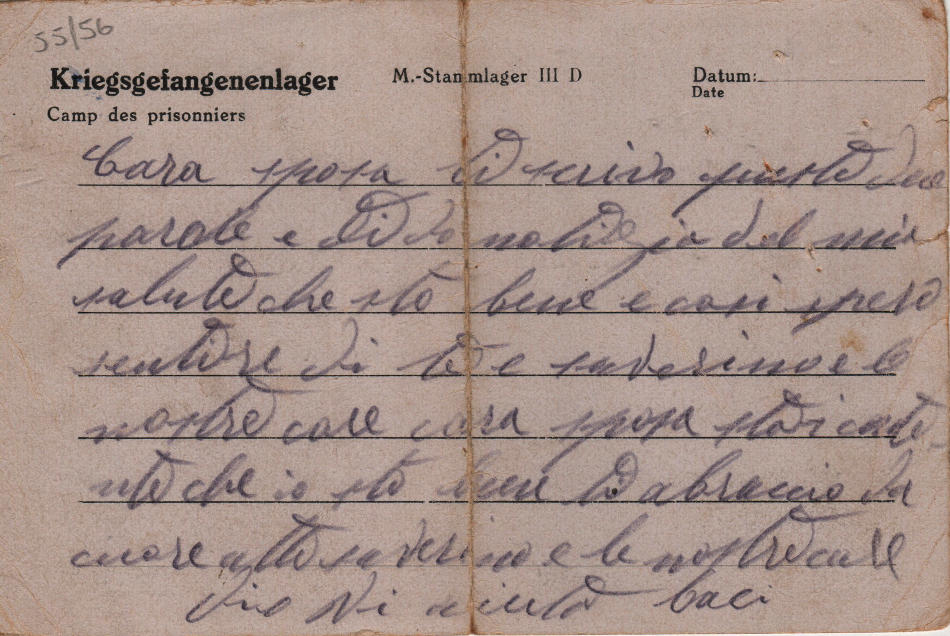 55/56
Kriegsgefangenenlager M.-Stammlager III D Datum:
Camp des prisonniers Date
Cara sposa ti scrivo queste due
parole e ti do notizia del mia
salute che sto bene e cosi spero
sentire di te e saverino e le
nostre care cara sposa stai conte-
nte che io sto bene ti abraccio di
cuore atte saverino e le nostre care
dio vi aiuta baci